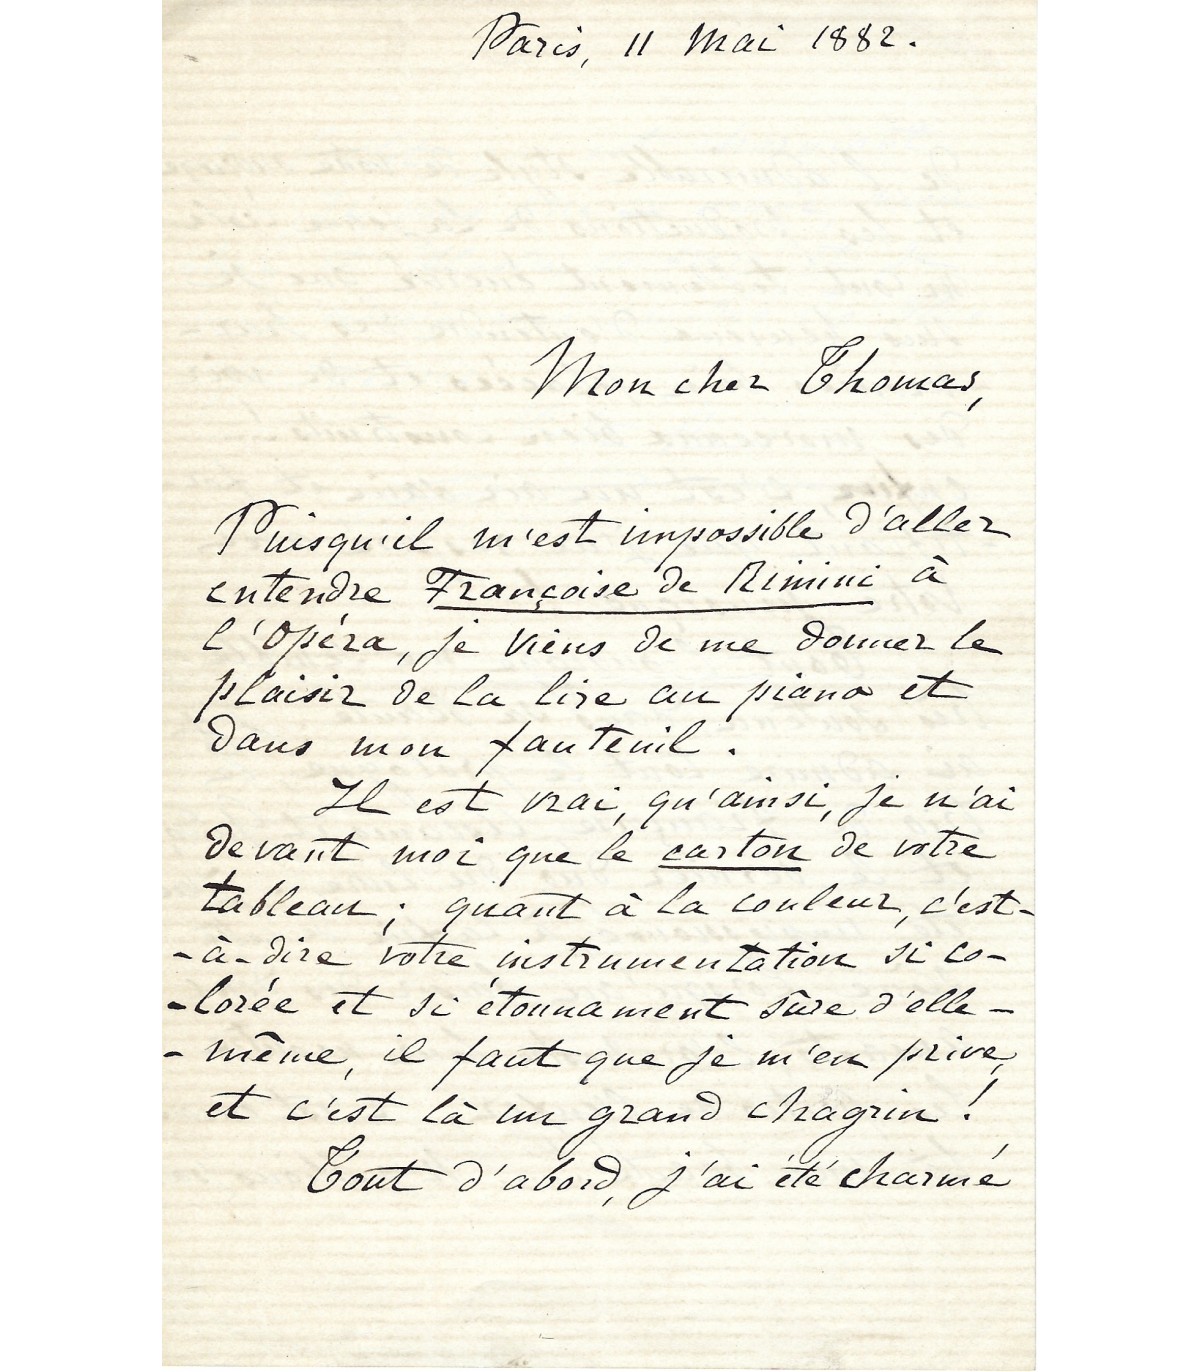 Paris, 11 Mai 1882.
Mon cher Thomas,
Puisqu'il m'est impossible d'aller
entendre Françoise de Rimini à
l'Opéra, je viens de me donner le
plaisir de la lire au piano et
dans mon fauteuil.
Il est vrai, qu'ainsi, je n'ai
devant moi que le carton de votre
tableau; quant à la couleur, c'est-
-à-dire votre instrumentation si co-
-lorée et si étonnament sûre d'elle-
-même, il faut que je m'en prive,
et c'est là un grand chagrin!
Tout d'abord, j'ai été charmé